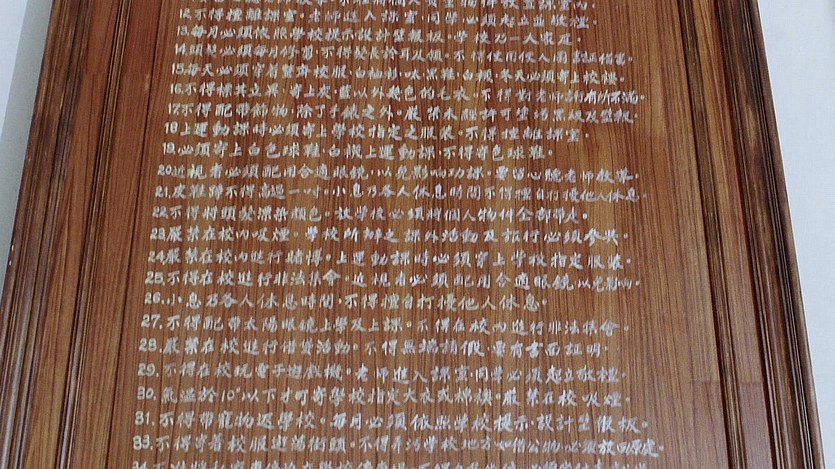 12.不得擅離課室。老師進入課室,同學必須起立並敬禮。
13.每月必須依照學校提示設計壁報板。學校乃一人家庭
14.頭髮必須每月修剪。不得較長於耳及領。不得使用使人
15.每天必須穿着整齊校服。白恤衫。灰黑鞋。白襪。冬天必須穿上校褸。
16.不得標其立異。穿上灰。藍以外雜色的毛衣。不得對老師
17.不得配帶飾物。除了手錶之外。嚴禁未經許可塗污黑板及壁報。
18.上運動課時必須穿上學校指定之服裝。不得擅離課室。
19.必須穿上白色球鞋。白襪上運動課。不得穿色球鞋。
20.近視者必須配用合適眼鏡。以免影响功課。要留心聽老師教導。
21.皮鞋踭不得高過一吋。小息乃各人休息時間不得擅自打擾他人休息
22.不得將頭髮漂染顏色。放學後必須將個人物件全部帶走
23.嚴禁在校內吸煙。學校所辦之課外活動及旅行必須參與
24.嚴禁在校內進行賭博。上運動課時必須穿上學校指定服裝。
25.不得在校進行非法集會。近視者必須配用合適眼鏡以免影响。
26.小息乃各人休息時間。不得擅自打擾他人休息。
27.不得配帶太陽眼鏡上學及上課。不得在校內進行非法集會。
28.嚴禁在校進行借貸活動。不得無端請假。要有書面証明。
29.不得在校玩電子遊戲機。老師進入課室,同學必須起立敬禮。
30.氣溫於10°以下才可穿學校指定大衣或棉褸。嚴禁在校吸煙。
31.不得帶寵物返學校。每月必須依照學校提示。設計壁報板。
33.不得穿着校服遊蕩街頭。不得弄污學校地方如借公物必須放回原處